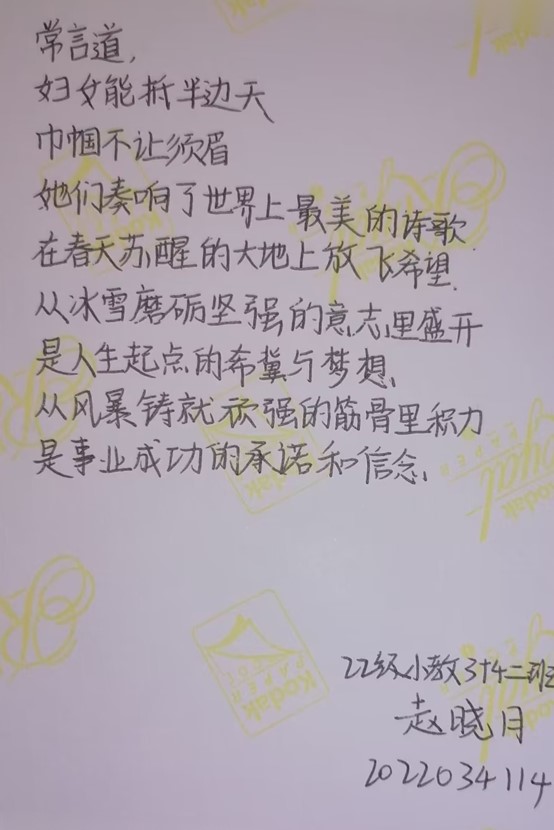 常言道,
妇女能抵半边天
巾帼不让须眉
她们奏响了世界上最美的诗歌
在春天苏醒的大地上放飞希望.
从冰雪磨砺坚强的意志里盛开
是人生起点的希冀与梦想、
从风暴铸就顽强的筋骨里积力
是事业成功的承诺和信念、
22级小教3+4二班
赵晓月
2022034114